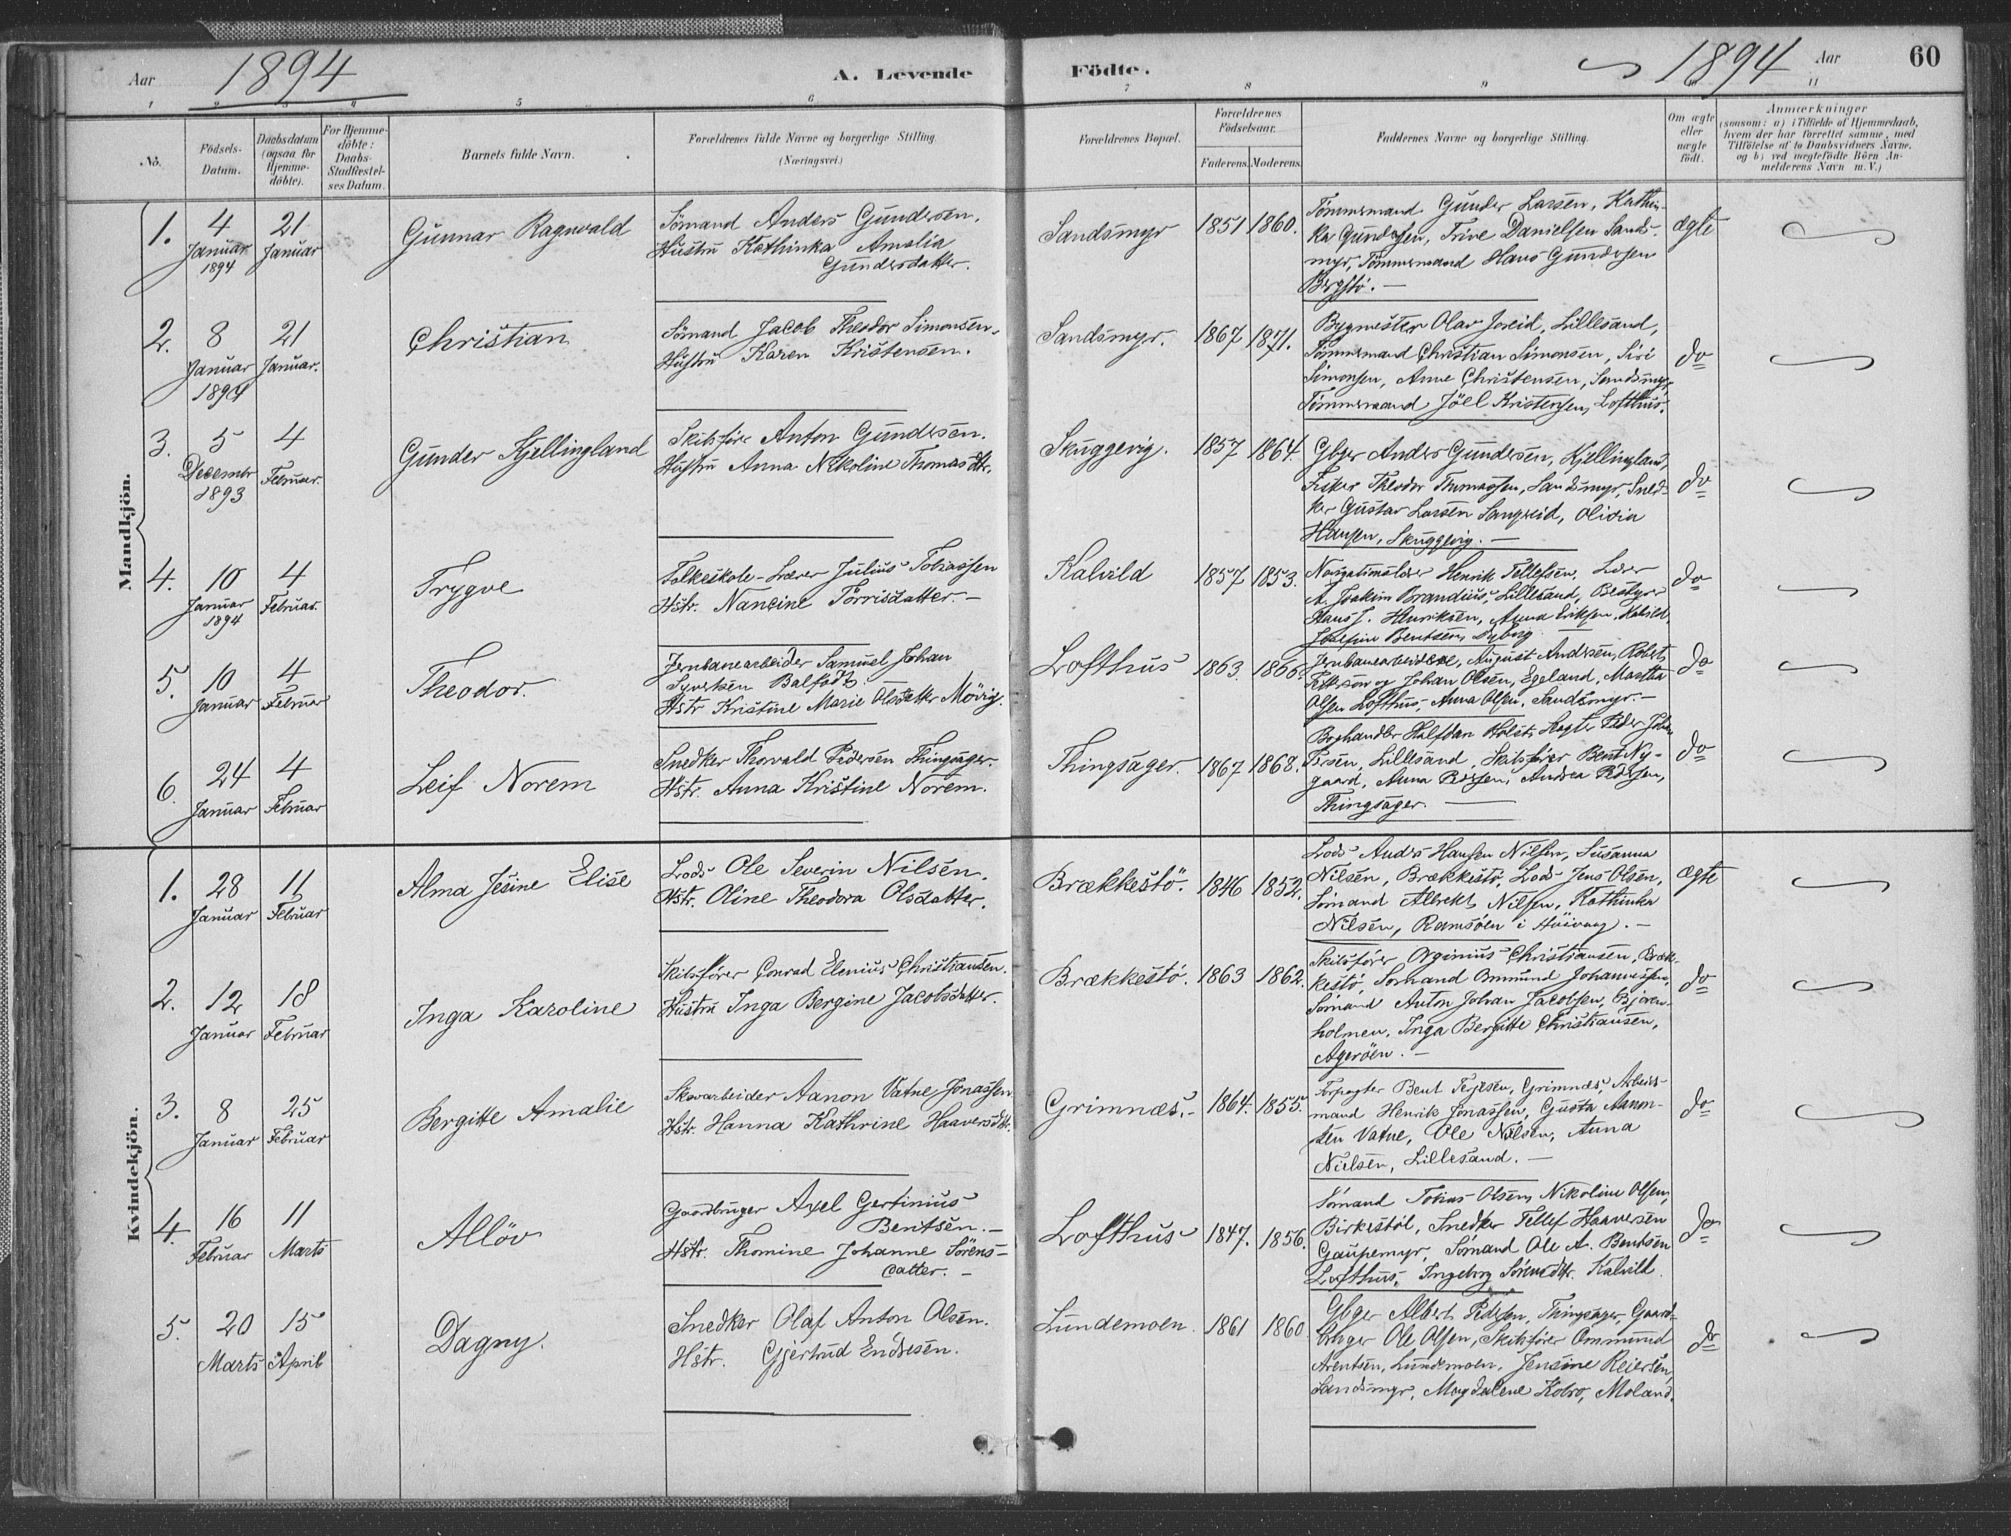 Aar 1894 A. Levende Födte. 1894 Aar 60
1 2 3 4 5 6 7 8 9 10 11
No.
Födsels-Datum.
Daabsdatum (ogsaa for Hjemme-döbte).
For Hjemme-döbte: Daabs-Stadfæstel-ses Datum.
Barnets fulde Navn.
Forældrenes fulde Navne og borgerlige Stilling.
(Næringsvei.)
Forældrenes Bopæl.
Forældrenes Födselsaar.
Faderens. Moderens.
Faddernes Navne og borgerlige Stilling.
Om ægte eller uægte födt.
Anmærkninger
(saasom: a) i Tilfælde af Hjemmedaab,
hvem der har forrettet samme, med
Tilföielse af to Daabsvidners Navne.
og b) ved uægtefödte Börn An-
melderens Navn m. V.)
Mandkjön.
1. 4 Januar 1894 21 Januar Gunnar Ragnvald
Sömand Anders Gundersen.
Hustru Kathinka Amalia
Gundersdatter.
Sandsmyr 1851 1860.
Tömmermand Gunder Larsen, Kathin-
ka Gundersen, Trine Danielsen Sands-
myr, Tömmermand Hans Gundersen
Bergstö. —
ægte
2. 8 Januar 1894 21 Januar. Christian
Sömand Jacob Theodor Simonsen.
Hustru Karen Kristensen.
Sandsmyr. 1867 1871.
Bygmester Olav Joreid, Lillesand,
Tömmermand Christian Simonsen, Siri
Simonsen, Anne Christensen, Sandsmyr,
Tömmermand Jöel Kristensen, Lofthus.
do
3. 5 December 1893 4 Februar. Gunder Kjellingland
Skibsförer Anton Gundersen.
Hustru Anna Nikoline Thomasdtr.
Skuggevig. 1857 1864.
Gbger Anders Gundersen, Kjellingland,
Fisker Theodor Thomassen, Sandsmyr, Sned-
ker Gustav Larsen Sangreid, Olivia
Hansen, Skuggevig. —
do
4. 10 Januar 1894 4 Februar. Trygve
Folkeskole-Lærer Julius Tobiassen
Hstr. Nancine Törrisdatter. —
Kalvild 1857 1853.
Navigationslærer Henrik Tellefsen, Lærer
A. Joakim Brandius, Lillesand, Bestyrer
Hans J. Henriksen, Anna Eriksen, Kalvild,
Josefine Bentsen, Dybvig
do
5. 10 Januar 4 Februar Theodor.
Jernbanearbeider Samuel Johan
Syvertsen Balfodt.
Hstr Kristine Marie Olsdatter Mövig.
Lofthus 1863. 1866.
Jernbanearbeiderne, August Andersen, Robert
Pettersen og Johan Olsen, Egeland, Martha
Olsen Lofthus, Anna Olsen, Sandsmyr. —
do
6. 24 Januar 4 Februar Leif Norem
Snedker Thorvald Pedersen Thingsager.
Hstr. Anna Kristine Norem.
Thingsager. 1867 1868.
Boghandler Halfdan Holst, Peder
Persen, Lillesand, Skibsförer Bent Ny-
gaard, Anna Persen, Andrea Pedersen,
Thingsager. —
do
Kvindekjön.
1. 28 Januar 11 Februar Alma Jesine Elise
Lods Ole Severin Nilsen.
Hstr. Oline Theodora Olsdatter.
Brækkestö. 1846 1852.
Lods Anders Hansen Nilsen, Susanna
Nilsen, Brækkestö, Lods Jens Olsen,
Sömand Albrekt Nilsen, Kathinka
Nilsen, Ramsöen i Höivaag. —
ægte
2. 12 Januar 18 Februar Inga Karoline
Skibsförer Conrad Elenius Christiansen.
Hustru Inga Bergine Jacobsdatter.
Brækkestö. 1863 1862.
Skibsförer Orginius Christiansen, Bræk-
kestö, Sömand Ommund Johannessen,
Sömand Anton Johan Jacobsen, Bjoren-
holmen, Inga Bergitte Christiansen,
Agerøen. —
do
3. 8 Januar 25 Februar Bergitte Amalie
Skovarbeider Aanon Vatne Jonassen.
Hstr. Hanna Kathrine Haaversdtr.
Grimnæs. 1864. 1855.
Forpagter Bent Terjesen, Grimnæs, Arbeids-
mand Henrik Jonassen, Gusta Aanon-
sen Vatne, Ole Nilsen, Anna
Nielsen, Lillesand. —
do
4. 16 Februar 11 Marts Allöv
Gaardbruger Axel Gertinius
Bentsen. —
Hstr. Thomine Johanne Sörens-
datter. —
Lofthus 1847. 1856.
Sömand Tobias Olsen, Nikoline Olsen,
Birkestöl, Snedker Tellef Haaversen
Gaupemyr, Sömand Ole A. Bentsen
Lofthus, Ingeborg Sörensdtr. Kalvild.
do
5. 20 Marts 15 April Dagny.
Snedker Olaf Anton Olsen.
Hstr. Gjertrud Endresen.
Lundemoen. 1861 1860
Gbger Albert Pedersen, Thingsager, Gaard-
bruger Ole Olsen, Skibsförer Ommund
Arentsen, Lundemoen, Jensine Reiersen,
Sandsmyr, Magdalene Kobro, Moland.
do